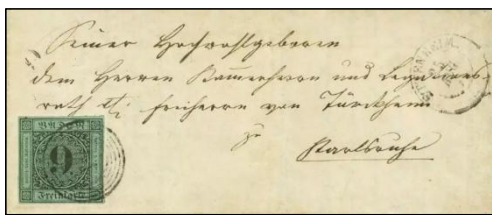 Seiner Hochwohlgeboren
dem Herren Kammerherrn und Legations-
rath Freiherrn von Türckheim
zu
Karlsruhe
BADEN
9
Freimarke